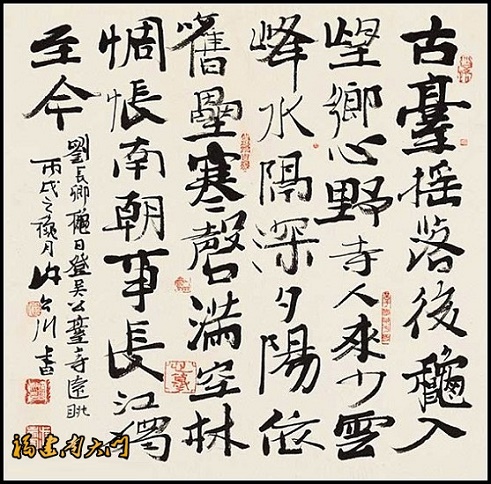 古臺搖落後龝入
望鄉心野寺人來少雲
峰水隔深夕陽依
舊壘寒磬滿空林
惆悵南朝事長江獨
至今
劉長卿龝日登吳公臺寺遠眺
丙戌之龝月
川書
福建南大門